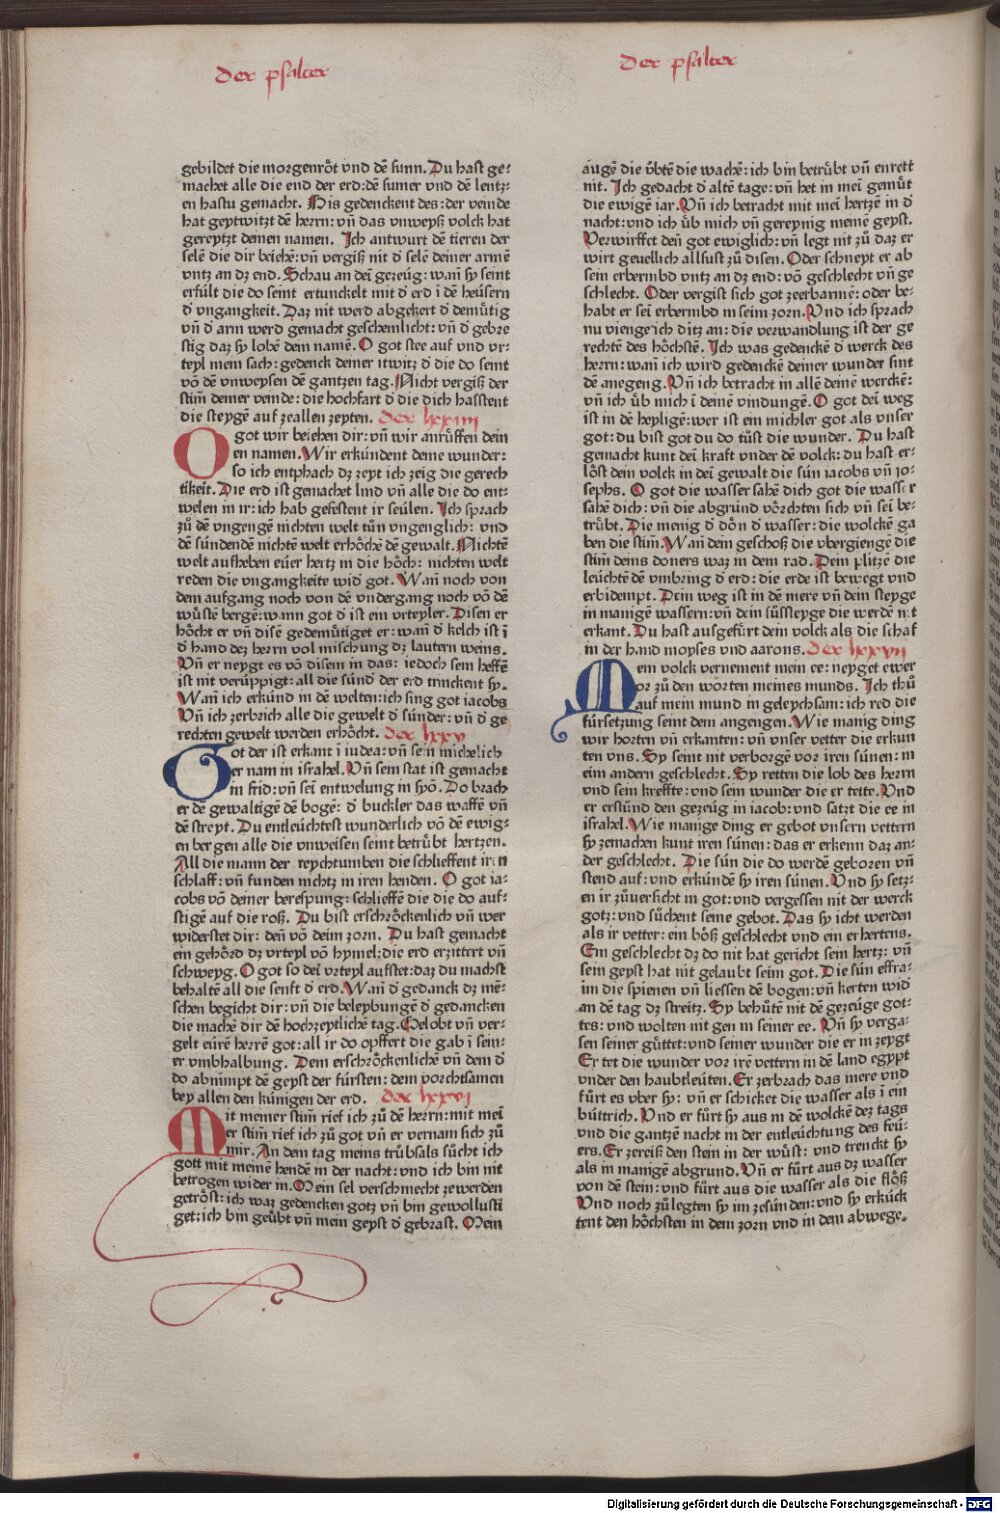 der psalter
gebildet die morgenrôt vnd dē sunn. Du hast ge-
machet alle die end der erd: dē sumer vnd dē lentz-
en hastu gemacht. Bis gedenckent des: der veinde
hat geytwitzt dē herrn: vn̄ das vnweyß volck hat
gereytzt deinen namen. Ich antwurt dē tieren der
selē die dir beiehē: vn̄ vergiß nit d̄ selē deiner armē
vntz an dz end. Schau an dei᷑ gezeůg: wan̄ sy seint
erfúlt die do seint ertunckelt mit d̄ erd ī dē heúsern
d̄ vngangkeit. Daz nit werd abgekert d̄ demútig
vn̄ d̄ arm werd gemacht geschemlicht: vn̄ d̄ gebre
stig daz sy lobē dein namē. O got stee auf vnd vr-
teyl mein sach: gedenck deiner itwitz d̄ die do seint
vō dē vnweysen dē gantzen tag. Nicht vergiß der
stim̄ deiner veinde: die hochfart d̄ die dich hasstent
die steygē auf zeallen zeyten. der lxxiiii
O got wir beiehen dir: vn̄ wir anrůffen dein
en namen. Wir erkúndent deine wunder:
so ich entphach dz zeyt ich zeig die gerech
tikeit. Die erd ist gemachet lind vn̄ alle die do ent-
welen in ir: ich hab gefestent ir seúlen. Ich sprach
zů dē vngengē nichten welt tůn vngenglich: vnd
dē súndendē nichtē welt erhôchē dē gewalt. Nichtē
welt aufheben eúer hertz in die hôch: nichten welt
reden die vngangkeite wid̄ got. Wan̄ noch von
dem aufgang noch von dē vndergang noch vō dē
wůstē bergē: wann got d̄ ist ein vrteyler. Disen er
hôcht er vn̄ disē gedemútiget er: wan̄ d̄ kelch ist ī
d̄ hand dez herrn vol mischung dz lautern weins.
Vn̄ er neygt es vō disem in das: iedoch sein heffē
ist nit verúppigt: all die súnd̄ der erd trinckent sy.
Wan̄ ich erkúnd in dē welten: ich sing got iacobs
Vn̄ ich zerbrich alle die gewelt d̄ súnder: vn̄ d̄ ge
rechten gewelt werden erhôcht. der lxxv
Got der ist erkant ī iudea: vn̄ sein michelich
er nam in israhel. Vn̄ sein stat ist gemacht
in frid: vn̄ sei᷑ entwelung in syō. Do brach
er dē gewaltigē dē bogē: d̄ buckler das waffē vn̄
dē streyt. Du entleúchtest wunderlich vō dē ewig-
en bergen alle die vnweisen seint betrúbt hertzen.
All die mann der reychtumben die schlieffent iren
schlaff: vn̄ funden nichtz in iren henden. O got ia-
cobs vō deiner berespung: schlieffē die die do auf-
stigē auf die roß. Du bist erschrôckenlich vn̄ wer
widerstet dir: den̄ vō deim zorn. Du hast gemacht
ein gehôrd dz vrteyl vō hymel: die erd erzittert vn̄
schweyg. O got so dei᷑ vrteyl aufstet: daz du machst
behaltē all die senft d̄ erd. Wan̄ d̄ gedanck dz mē-
schen begicht dir: vn̄ die beleybungē d̄ gedancken
die machē dir dē hochzeytlichē tag. Gelobt vn̄ ver-
gelt eúrē herrē got: all ir do opffert die gab ī sein-
er vmbhalbung. Dem erschrôckenlichē vn̄ dem d̄
do abnimpt dē geyst der fúrsten: dem vorchtsamen
bey allen den kúnigen der erd. der lxxvi
Mit meiner stim̄ rief ich zů dē herrn: mit mei᷑
er stim̄ rief ich zů got vn̄ er vernam sich zů
mir. An dem tag meins trúbsals sůcht ich
gott mit meinē hendē in der nacht: vnd ich bin nit
betrogen wider in. Mein sel verschmecht zewerden
getrôst: ich waz gedencken gotz vn̄ bin gewollusti
get: ich bin geúbt vn̄ mein geyst d̄ gebrast. Mein
der psalter
augē die v̂btē die wachē: ich bin betrúbt vn̄ enrett
nit. Ich gedacht d̄ altē tage: vn̄ het in mei᷑ gemút
die ewigē iar. Vn̄ ich betracht mit mei᷑ hertzē in d̄
nacht: vnd ich úb mich vn̄ gereynig meinē geyst.
Verwirffet den̄ got ewiglich: vn̄ legt nit zů daz er
wirt geuellich allsust zů disen. Oder schneyt er ab
sein erbermbd vntz an dz end: vō geschlecht vn̄ ge
schlecht. Oder vergist sich got zeerbarmē: oder be-
habt er sei᷑ erbermbd in seim zorn. Vnd ich sprach
nu vienge ich ditz an: die verwandlung ist der ge
rechtē des hôchstē. Ich was gedenckē d̄ werck des
herrn: wan̄ ich wird gedenckē deiner wunder sint
dē anegeng. Vn̄ ich betracht in allē deinē werckē:
vn̄ ich úb mich ī deinē vindungē. O got dei᷑ weg
ist in dē heyligē: wer ist ein michler got als vnser
got: du bist got du do tůst die wunder. Du hast
gemacht kunt dei᷑ kraft vnder dē volck: du hast er-
lôst dein volck in dei᷑ gewalt die sún iacobs vn̄ io-
sephs. O got die wasser sahē dich got die wasser
sahē dich: vn̄ die abgrund vôrchten sich vn̄ sei᷑ be-
trúbt. Die menig d̄ dôn d̄ wasser: die wolckē ga
ben die stim̄. Wan̄ dein geschoß die vbergiengē die
stim̄ deins doners waz in dem rad. Dein plitzē die
leúchtē dē vmbring d̄ erd: die erde ist bewegt vnd
erbidempt. Dein weg ist in dē mere vn̄ dein steyge
in manigē wassern: vn̄ dein fůßsteyge die werdē nit
erkant. Du hast ausgefúrt dein volck als die schaf
in der hand moyses vnd aarons. der lxxvii
Mein volck vernement mein ee: neyget ewer
or zů den worten meines munds. Ich thů
auf mein mund in geleychsam: ich red die
fúrsetzung seint dem angengen. Wie manig ding
wir horten vn̄ erkanten: vn̄ vnser vetter die erkun
ten vns. Sy seint nit verborgē vor iren súnen: in
eim andern geschlecht. Sy retten die lob des herrn
vnd sein kreffte: vnd sein wunder die er tette. Vnd
er erstůnd den gezeúg in iacob: vnd satzt die ee in
israhel. Wie manige ding er gebot vnsern vettern
sy zemachen kunt iren súnen: das er erkenn daz an-
der geschlecht. Die sún die do werdē geboren vn̄
stend auf: vnd erkúndē sy iren súnen. Vnd sy setz-
en ir zůuersicht in got: vnd vergessen nit der werck
gotz: vnd sůchent seine gebot. Das sy icht werden
als ir vetter: ein bôß geschlecht vnd ein erhertens.
Ein geschlecht dz do nit hat gericht sein hertz: vn̄
sein geyst hat nit gelaubt seim got. Die sún effra-
im die spienen vn̄ liessen dē bogen: vn̄ kerten wid̄
an dē tag dz streitz. Sy behůtē nit dē gezeúge got-
tes: vnd wolten nit gen in seiner ee. Vn̄ sy verga-
sen seiner gúttet: vnd seiner wunder die er in zeygt
Er tet die wunder vor irē vettern in dē land egypt
vnder den haubtleúten. Er zerbrach das mere vnd
fúrt es vber sy: vn̄ er schicket die wasser als ī ein
búttrich. Vnd er fúrt sy aus in dē wolckē dez tags
vnd die gantzē nacht in der entleúchtung des feú-
ers. Er zereiß den stein in der wůst: vnd trenckt sy
als in manigē abgrund. Vn̄ er fúrt aus dz wasser
von dē stein: vnd fúrt aus die wasser als die flôß
Vnd noch zůlegten sy im zesúnden: vnd sy erkúck
tent den hôchsten in dem zorn vnd in dem abwege.
Digitalisierung gefördert durch die Deutsche Forschungsgemeinschaft - DFG